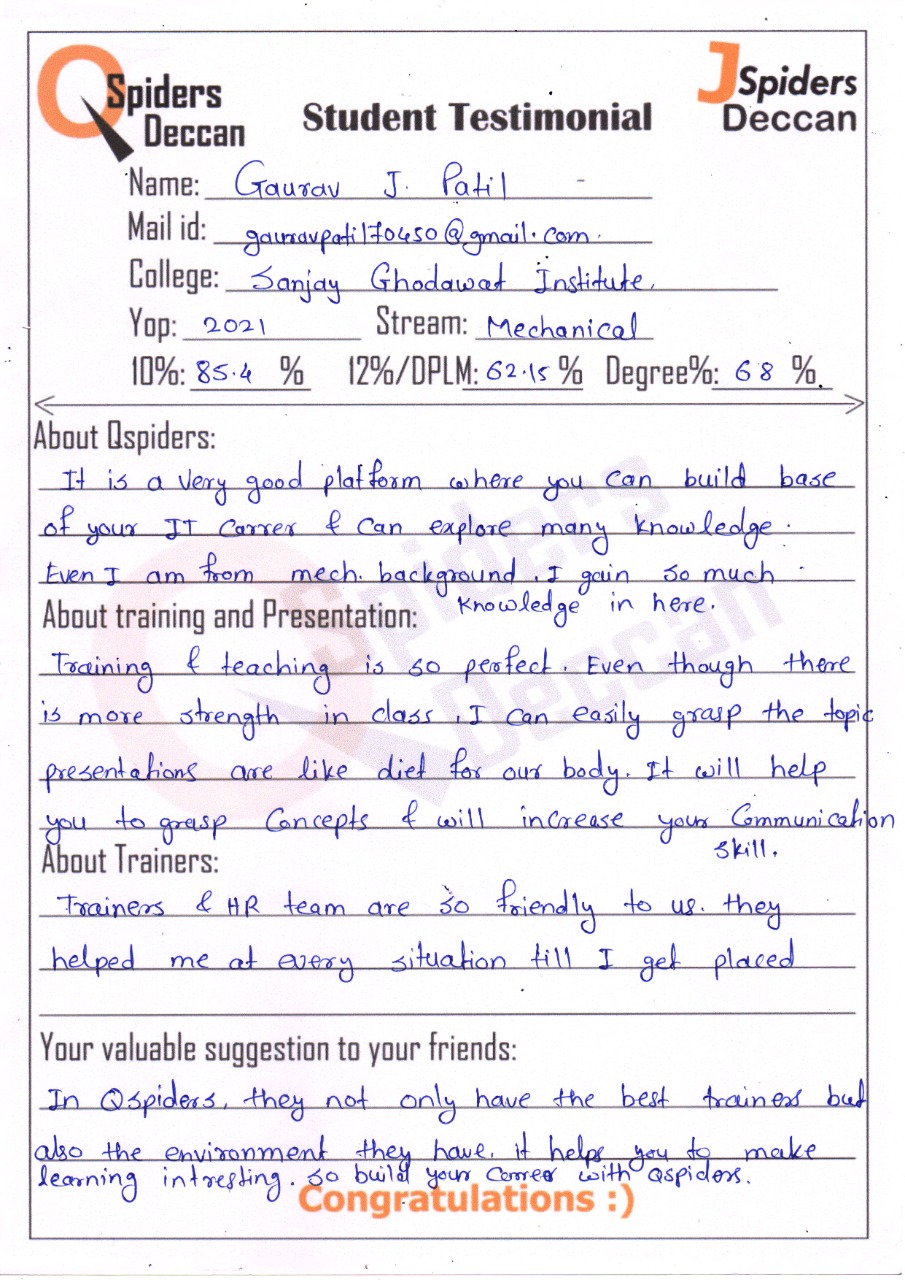 QSpiders
Deccan
JSpiders
Deccan
Student Testimonial
Name: Gaurav J. Patil
Mail id: gauravpatil70450@gmail.com.
College: Sanjay Ghodawat Institute.
Yop: 2021 Stream: Mechanical
10%: 85.4 % 12%/DPLM: 62.15 % Degree%: 68 %.
About Qspiders:
It is a very good platform where you can build base
of your IT Carrer & Can explore many knowledge.
Even I am from mech. background. I gain so much
knowledge in here.
About training and Presentation:
Training & teaching is so perfect. Even though there
is more strength in class, I can easily grasp the topic
presentations are like diet for our body. It will help
you to grasp Concepts & will increase your Communication
skill.
About Trainers:
Trainers & HR team are so friendly to us. they
helped me at every situation till I get placed
Your valuable suggestion to your friends:
In Qspiders, they not only have the best trainers but
also the environment they have. it helps you to make
learning intresting. so build your Carrer with Qspiders.
Congratulations :)
QSpiders
Deccan